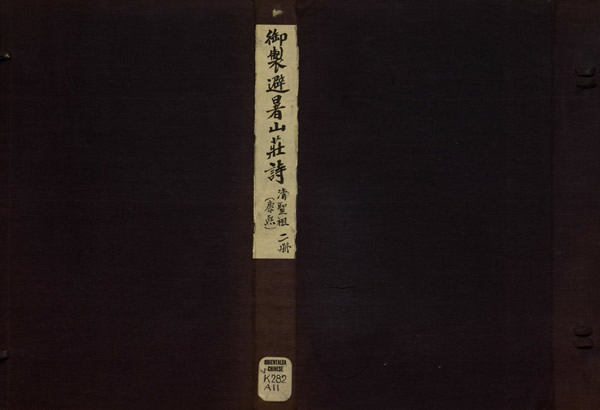 御製避暑山莊詩
清聖祖
(康熙)
二册
ORIENTALIA
CHINESE
K282
A11